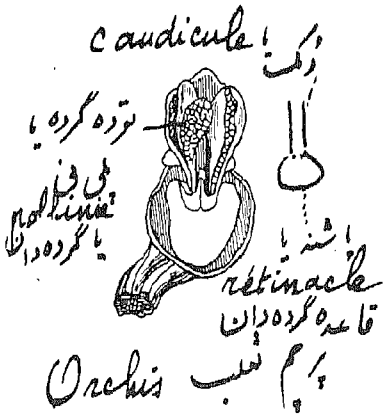 caudicule یا
دمک
توده گرده یا
پلی نی
pollinie
یا گرده‌دان
پاشنه یا
rétinacle
قاعده گرده‌دان
پرچم ثعلب Orchis